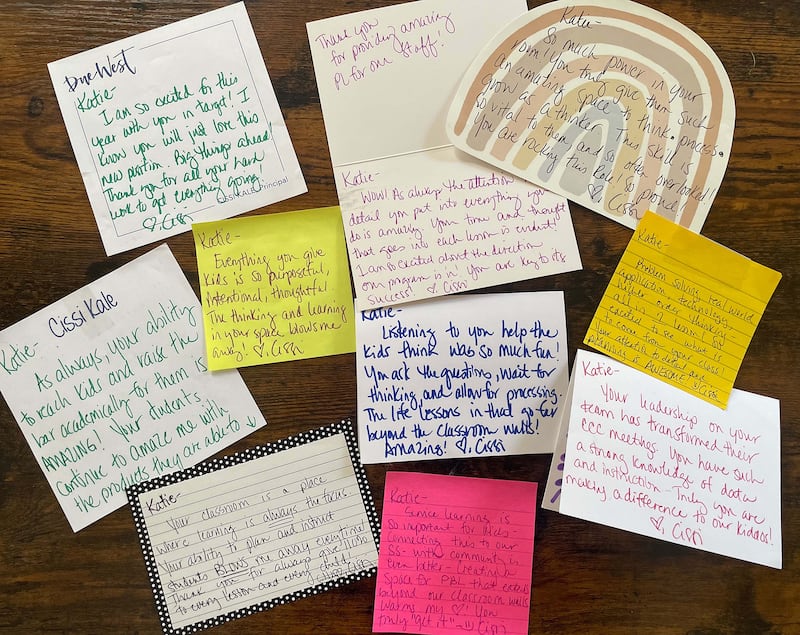 Due West
Katie-
I am so excited for this
year with you in Target! I
know you will just love this
new position. Big things ahead!
Thank you for all your hard
work to get everything going.
♡, Cissi
Principal
Thank you
for providing amazing
PL for our staff!
Katie-
WOW! As always the attention
detail you put into everything you
do is amazing. Your time and thought
that goes into each lesson is evident!
I am so excited about the direction
our program is in! You are key to its
success! ♡, Cissi
Katie-
So much power in your
room! You truly give them such
an amazing space to think, process,
grow as a thinker. This skill is
so vital to them and so often overlooked!
You are rocking this role! So proud!
♡, Cissi
Katie-
Everything you give
kids is so purposeful,
intentional, thoughtful.
The thinking and learning
in your space blows me
away! ♡, Cissi
Katie-
Problem solving, real world
application, technology,
higher order thinking-
all in 1 lesson! I am
excited to see what is
to come from your class!
Your attention to detail and
is AWESOME! ♡, Cissi
Cissi Kale
Katie-
As always, your ability
to reach kids and raise the
bar academically for them is
AMAZING! Your students
continue to amaze me with
the products they are able to ↓
Katie-
Listening to you help the
kids think was so much fun!
You ask the questions, wait for
thinking and allow for processing.
The life lessons in that go far
beyond the classroom walls!
Amazing! ♡, Cissi
Katie-
Your leadership on your
team has transformed their
CCC meetings. You have such
a strong knowledge of data
and instruction. Truly you are
making a difference to our kiddos!
♡, Cissi
Katie-
Your classroom is a place
where learning is always the focus.
Your ability to plan and instruct
students BLOWS me away everytime!
Thank you for always give 110%
to every lesson and every child!
Katie-
Service learning is
so important for kids-
connecting this to our
SS- with community is
even better- Creating a
space for PBL that extends
beyond our classroom walls
warms my ♡! You
truly "get it" Cissi